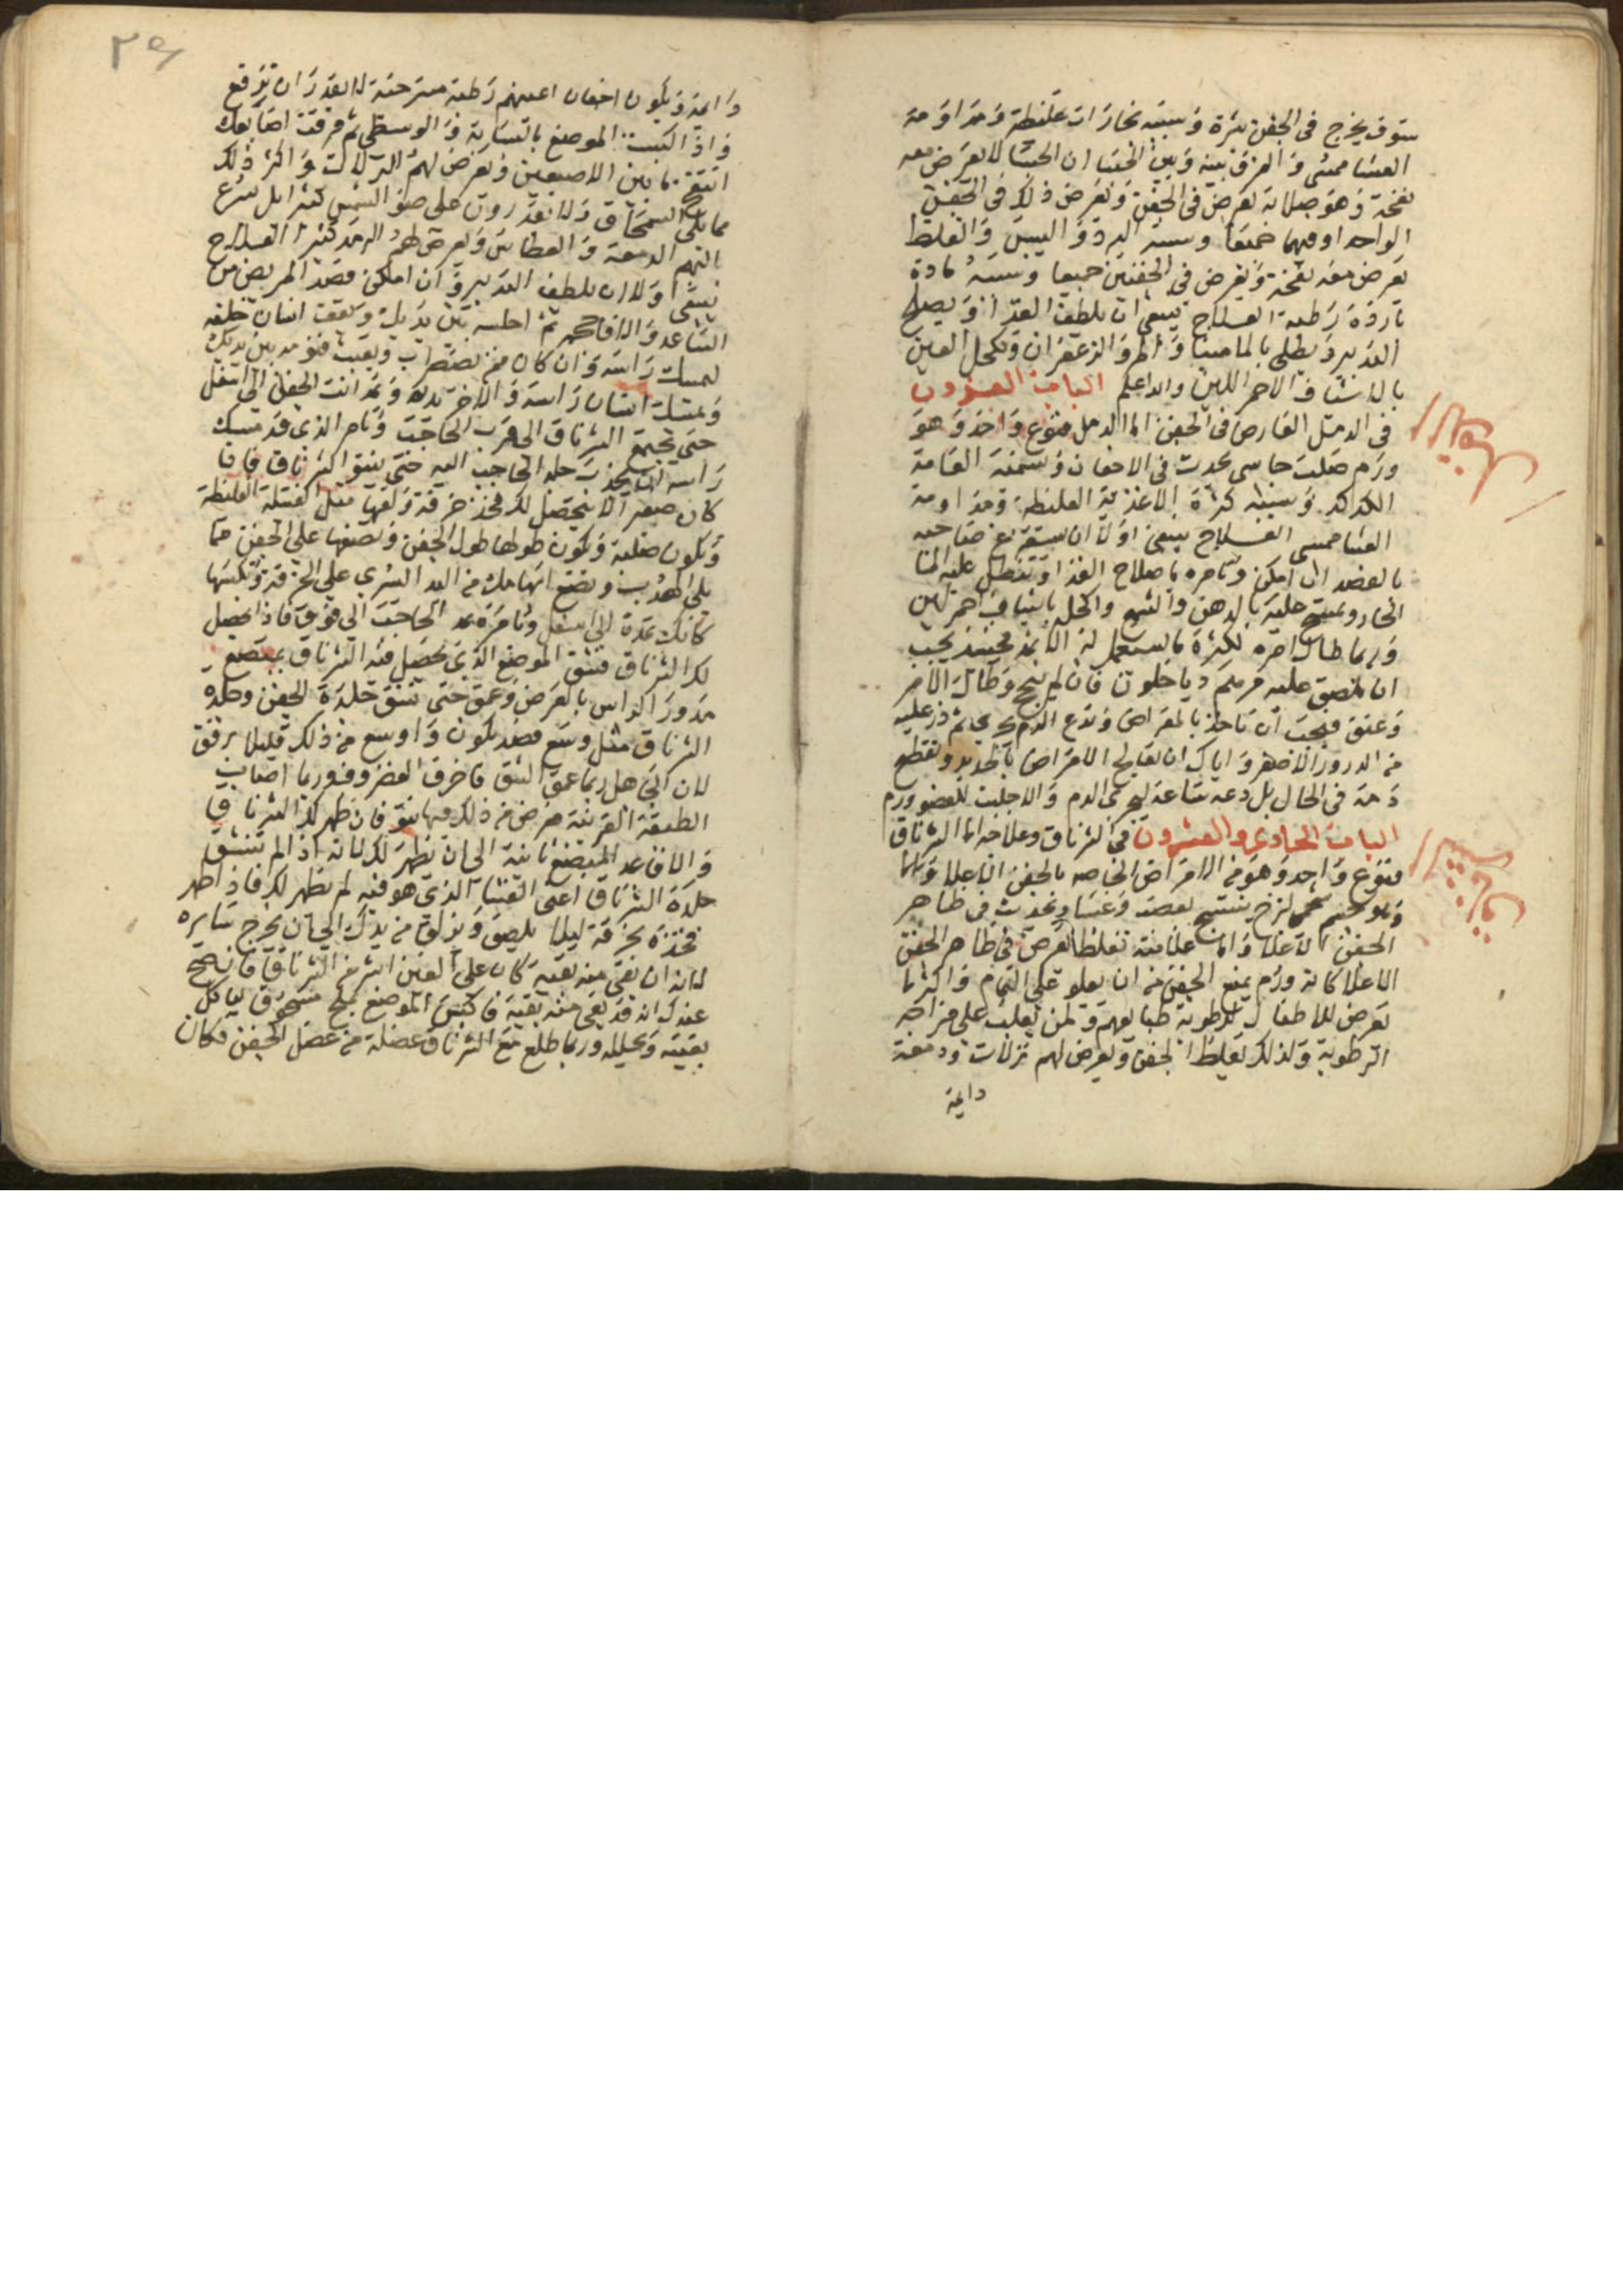 سوف يخرج في الجفن بثرة وسببه بخارات غليظة ومداومة
العشا ممسى والفرق بينه وبين الجسا ان الجسا لا يعرض معه
نفخة وهو صلابة تعرض في الجفن وتعرض ذلك في الجفن
الواحد او فيهما جميعا وسببه البرد واليبس والغلظ
يعرض معه نفخة ويعرض في الجفنين جميعا وسببه مادة
باردة رطبة العلاج ينبغي ان يلطف الغذا ويصلح
التدبير ويطلى بالماميثا والمر والزعفران وتكحل العين
بالاشياف الاحمر اللين والله اعلم الباب العشرون
في الدمل العارض في الجفن اما الدمل فنوع واحد وهو
ورم صلب جاسي يحدث في الاجفان وتسميه العامة
الكدكد وسببه كثرة الاغذية الغليظة ومداومة
العشا ممسى العلاج ينبغي اولا ان يستفرغ صاحبه
بالفصد ان امكن وتامره باصلاح الغذا وتنطل عليه الما
الحار وتمسح عليه بالدهن والشمع واكحل باشياف احمر لين
وربما طال امره لكثرة ما يستعمل له الاثمد فحينئذ يجب
ان يلصق عليه مرهم دياخلون فان لم ينجح وطال الامر
وعتق فيجب ان تاخذ بالمقراض وتدع الدم يجري ثم ذر عليه
من الدرور الاصفر واياك ان تعالج الامراض بالحديد وتقطع
دمه في الحال بل دعه ساعة ليجري الدم والا جلبت للعضو ورم
الباب الحادي والعشرون في الشرناق وعلاجه اما الشرناق
فنوع واحد وهو من الامراض الخاصة بالجفن الاعلا وانما
وهو جسم شحمي لزج ينتسج بعصب وغشا ويحدث في ظاهر
الجفن الاعلا واما علامته فغلظ يعرض في ظاهر الجفن
الاعلا كانه ورم يمنع الجفن من ان يعلو على التمام واكثر ما
يعرض للاطفال لرطوبة طبايعهم ولمن يغلب على مزاجه
الرطوبة ولذلك يغلظ الجفن ويعرض لهم نزلات ودمعة
دايمة
٢٥
دايمة ويكون اجفان اعينهم رطبة مسترخية لا يقدر ان ترفع
واذا اكبست الموضع بالسبابة والوسطى ثم فرقت اصابعك
انتفخ ما بين الاصبعين ويعرض لهم النزلات واكثر ذلك
مما يلي السمحاق ولا يقدرون على ضوء الشمس كثيرا بل تسرع
اليهم الدمعة والعطاس ويعرض لهم الرمد كثيرا العلاج
ينبغي اولا ان يلطف التدبير وان امكن فصد المريض من
الساعد والا فاحجمه ثم اجلسه بين يديك وتقف انسان خلفه
ليمسك راسه وان كان من يضطرب ويعبث فنومه بين يديك
ويمسك انسان راسه والاخر يديه وتمد انت الجفن الى اسفل
حتى يجتمع الشرناق الى قرب الحاجب وتامر الذي قد مسك
راسه ان يجذب جلد الحاجب اليه حتى ينتو الشرناق فان
كان صغيرا لا يتحصل لك فخذ خرقة ولفها مثل الفتيلة الغليظة
وتكون صلبة وتكون طولها طول الجفن وتضعها على الجفن مما
يلي الهدب وتضع ابهامك من اليد اليسرى على الخرقة وتكبسها
كانك تمده الى اسفل وتامره يمد الحاجب الى فوق فاذا حصل
لك الشرناق فشق الموضع الذي يحصل فيه الشرناق بمبضع
مدور الراس بالعرض وعمق حتى تشق جلدة الجفن وجلدة
الشرناق مثل وسع فصد يكون واوسع من ذلك قليلا برفق
لان الجاهل ربما عمق الشق فاخرق الغضروف وربما اصاب
الطبقة القرنية فعرض من ذلك فيها نتو فان ظهر لك الشرناق
والا فاعد المبضع ثانية الى ان يظهر لك لانه اذا لم تنشق
جلدة الشرناق اعني الغشا الذي هو فيه لم يظهر لك فاذا ظهر
فخذه بخرقة ليلا يلصق ويزلق من يدك الى ان يخرج سايره
لانه ان بقى منه بقية كان على العين اشر من الشرناق فان صح
عندك انه قد بقى منه بقية فاكبس الموضع بملح مسحوق لياكل
بقيته ويحلله وربما طلع مع الشرناق عضلة من عضل الجفن فكان